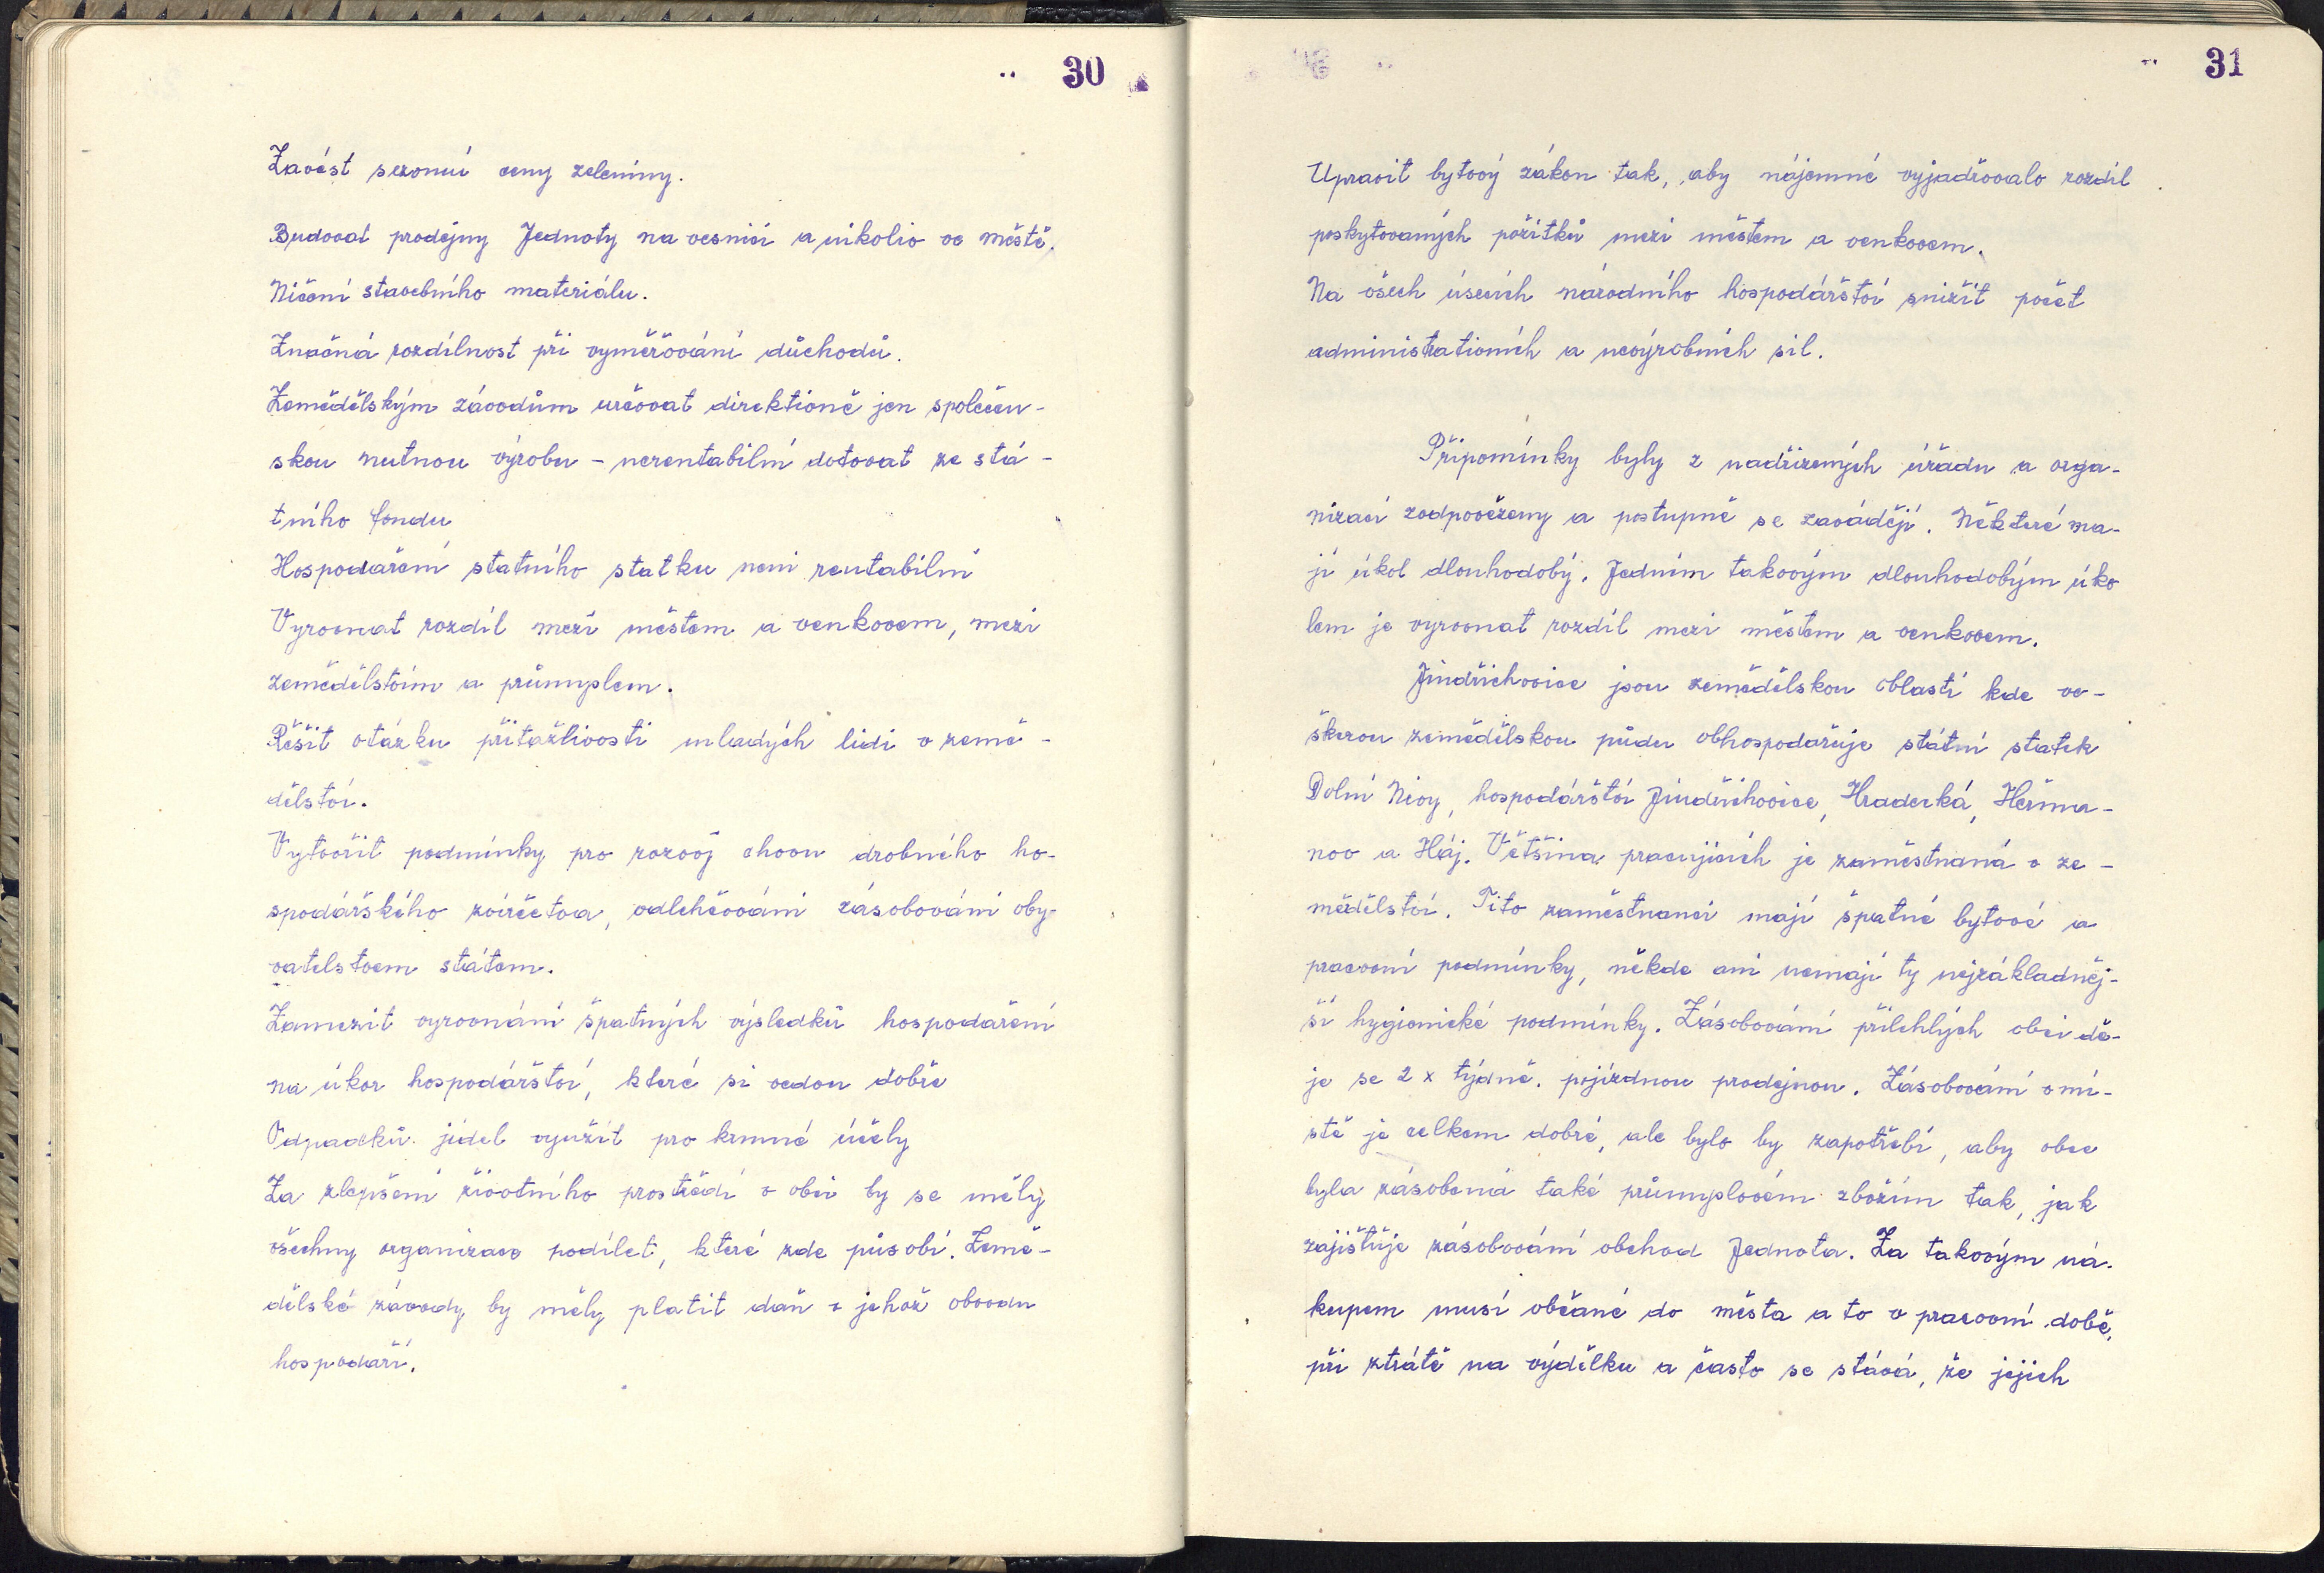 30
Zavést sezonní ceny zeleniny.
Budovat prodejny Jednoty na vesnici a nikoliv ve městě.
Ničení stavebního materiálu.
Značná rozdílnost při vyměřování důchodů.
Zemědělským závodům určovat direktivně jen společen-
skou nutnou výrobu - nerentabilní dotovat ze stá-
tního fondu
Hospodaření statního statku neni rentabilní
Vyrovnat rozdíl mezi městem a venkovem, mezi
zemědělstvím a průmyslem.
Řešit otázku přitažlivosti mladých lidi v země-
dělství.
Vytvořit podmínky pro rozvoj chovu drobného ho-
spodářského zvířectva, odlehčování zásobování oby-
vatelstvem státem.
Zamezit vyrovnání špatných výsledků hospodaření
na úkor hospodářství, které si vedou dobře
Odpadků jídel využít pro krmné účely
Za zlepšení životního prostředí v obci by se měly
všechny organizace podílet, které zde působí. Země-
dělské závody by měly platit daň v jehož obvodu
hospodaří.
31
Upravit bytový zákon tak, aby nájemné vyjadřovalo rozdíl
poskytovaných požitků mezi městem a venkovem.
Na všech úsecích národního hospodářství snížit počet
administrativních a nevýrobních sil.
Připomínky byly z nadřízených úřadu a orga-
nizací zodpovězeny a postupně se zavádějí. Některé ma-
jí úkol dlouhodobý. Jedním takovým dlouhodobým úko
lem je vyrovnat rozdíl mezi městem a venkovem.
Jindřichovice jsou zemědělskou oblastí kde ve-
škerou zemědělskou půdu obhospodařuje státní statek
Dolní Nivy, hospodářství Jindřichovice, Hradecká, Heřma-
nov a Háj. Většina pracujících je zaměstnaná v ze-
mědělství. Tito zaměstnanci mají špatné bytové a
pracovní podmínky, někde ani nemají ty nejzákladněj-
ší hygienické podmínky. Zásobování přilehlých obcí dě-
je se 2 x týdně. pojízdnou prodejnou. Zásobování v mí-
stě je celkem dobré, ale bylo by zapotřebí, aby obec
byla zásobená také průmyslovém zbožím tak, jak
zajištůje zásobování obchod Jednota. Za takovým ná-
kupem musí občané do města a to v pracovní době,
při ztrátě na výdělku a často se stává, že jejich